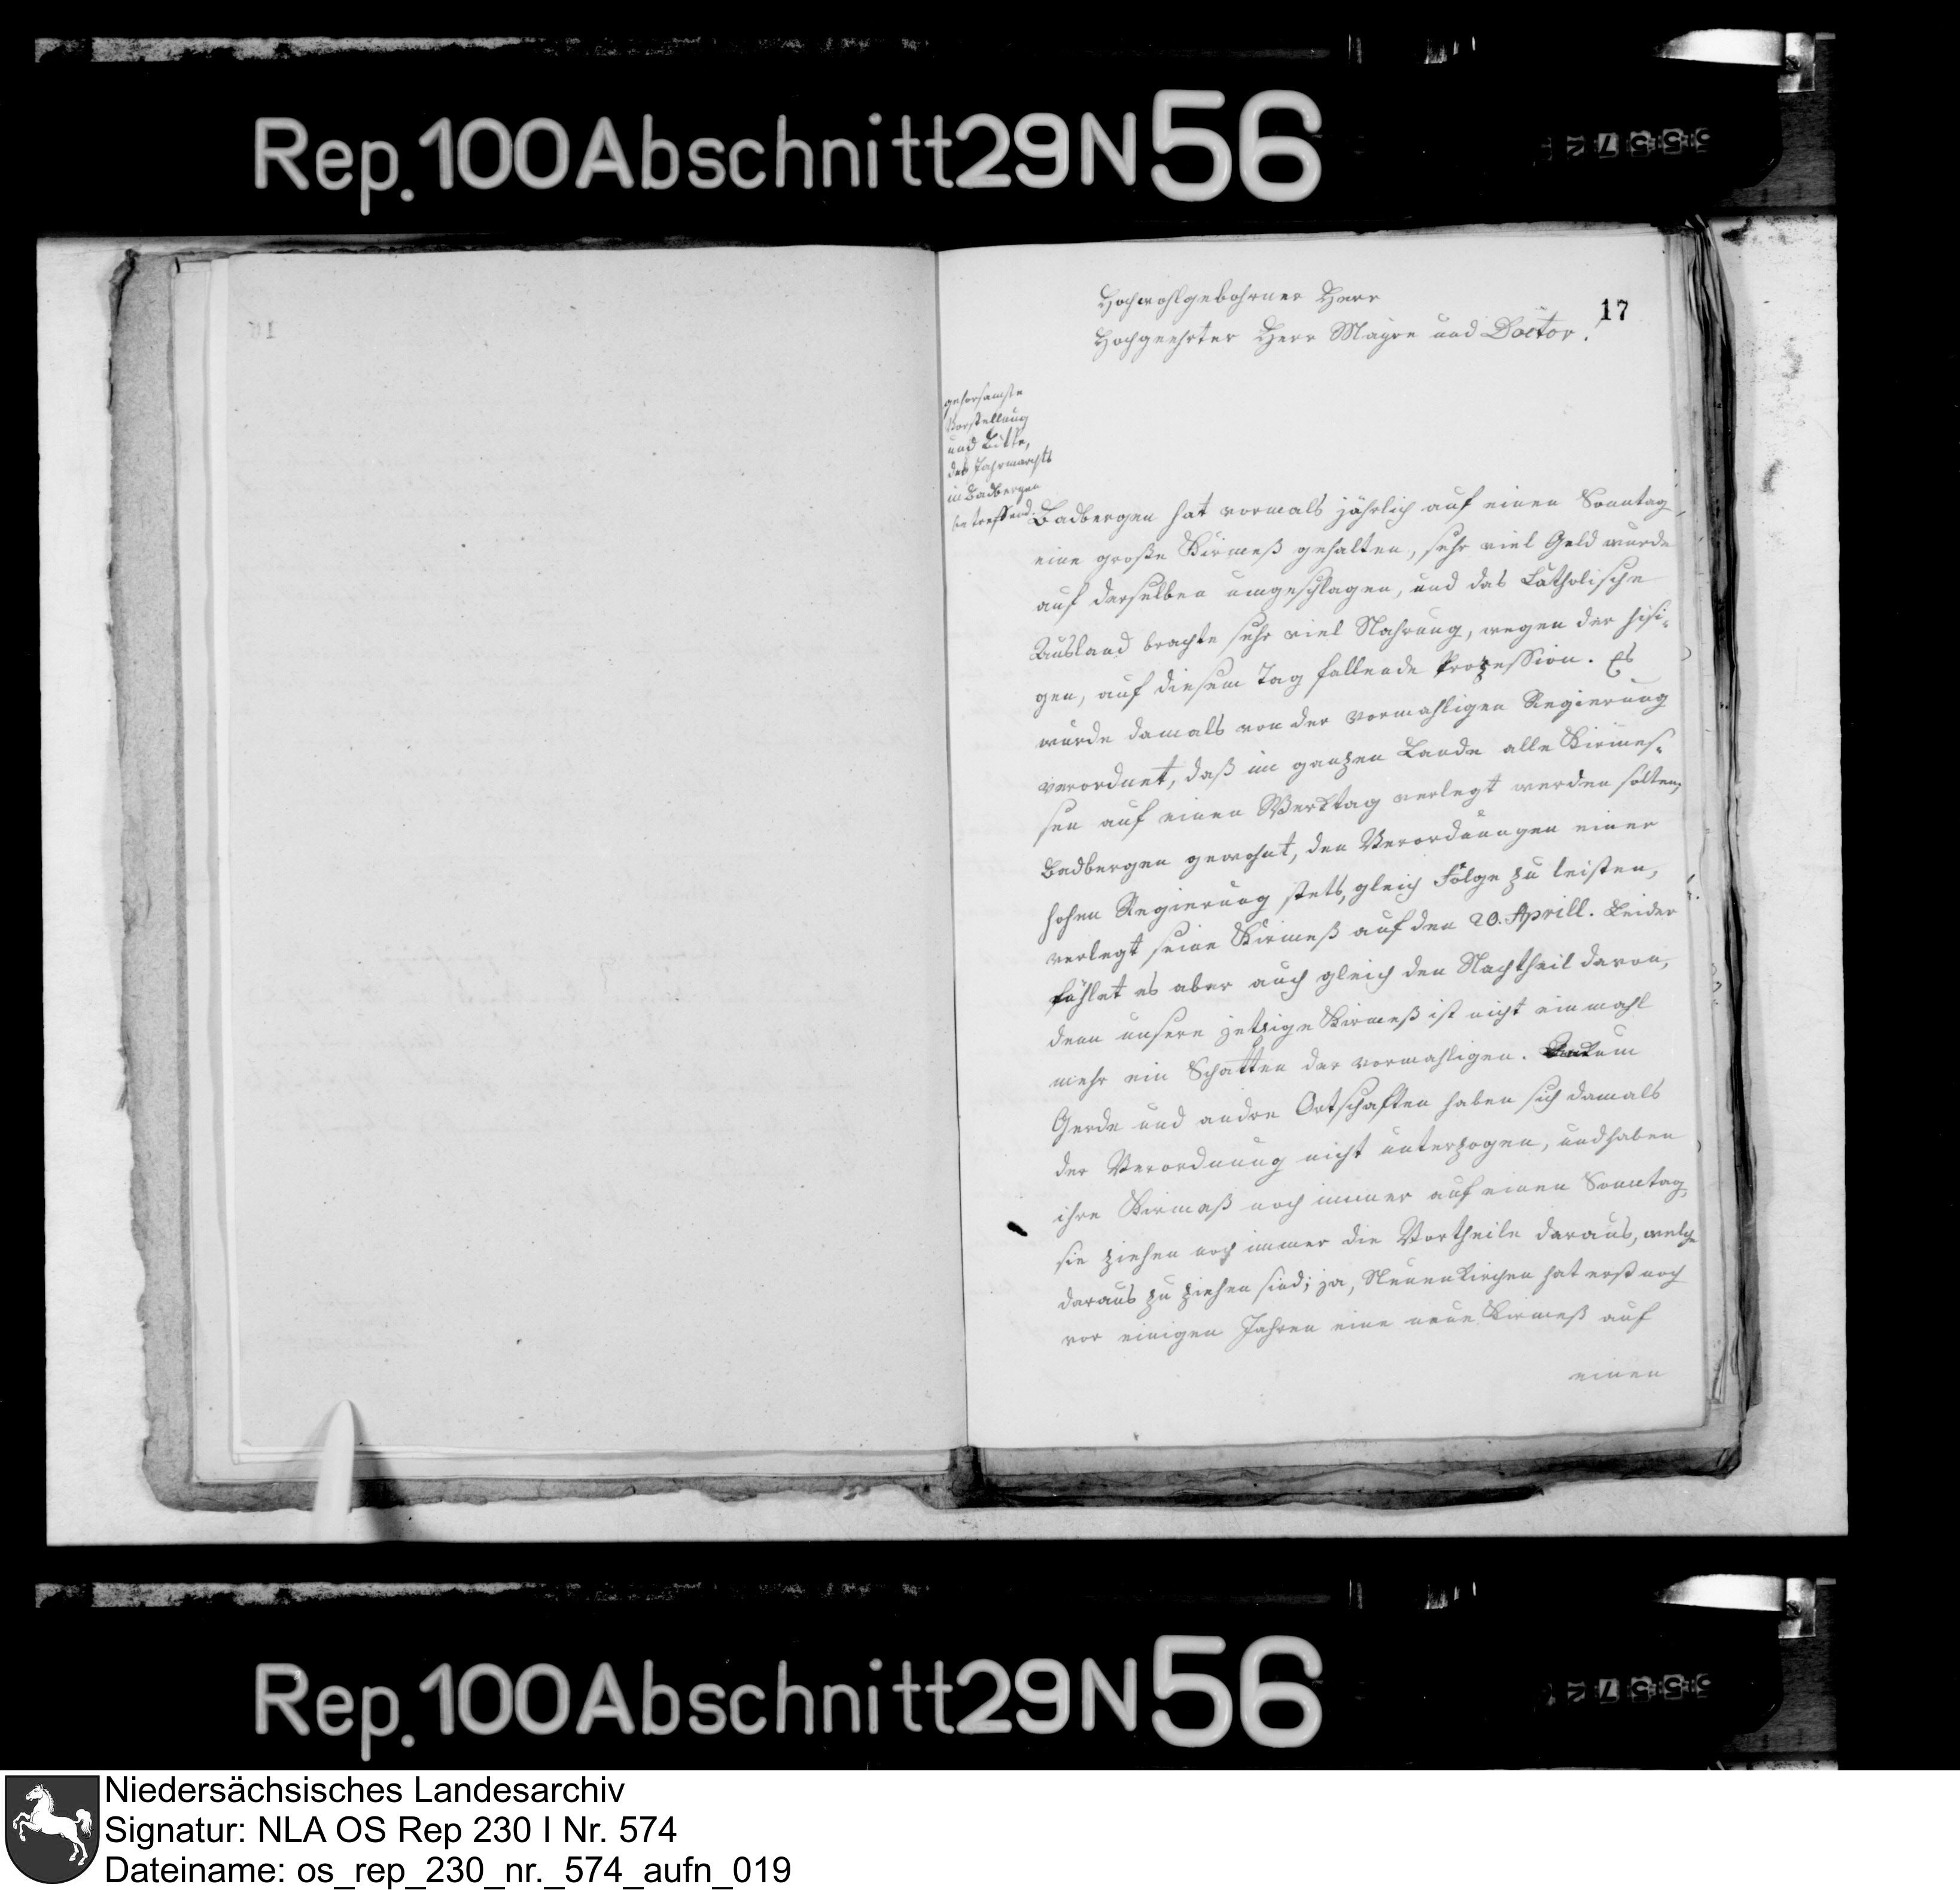 Rep. 100 Abschnitt 29 N 56
17
Hochwohlgebohrner Herr
Hochgeehrter Herr Mayre und Doctor!
gehorsamste
Vorstellung
und Bitte,
des Jahrmarchts
in Badbergen
betreffend.
Badbergen hat vormals jährlich auf einen Sonntag
eine große Kirmeß gehalten, sehr viel Geld wurde
auf derselben umgeschlagen, und das Catholische
Ausland brachte sehr viel Nahrung, wegen der hisi-
gen, auf diesem Tag fallende Prozession. Es
wurde damals von der vormahligen Regierung
verordnet, daß im ganzen Lande alle Kirmes-
sen auf einen Werktag verlegt werden solten,
Badbergen gewohnt, den Verordnungen einer
hohen Regierung stets, gleich Folge zu leisten,
verlegt seine Kirmeß auf den 20. Aprill. Leider
fühlet es aber auch gleich den Nachtheil davon,
denn unsere jetzige Kirmeß ist nicht einmahl
mehr ein Schatten der vormahligen.
Gerde und andre Ortschaften haben sich damals
der Verordnung nicht unterzogen, und haben
ihre Kirmeß noch immer auf einen Sonntag,
sie ziehen noch immer die Vortheile daraus, welche
daraus zu ziehen sind; ja, Neuenkirchen hat erst noch
vor einigen Jahren eine neue Kirmeß auf
einen
Rep. 100 Abschnitt 29 N 56
Niedersächsisches Landesarchiv
Signatur: NLA OS Rep 230 I Nr. 574
Dateiname: os_rep_230_nr._574_aufn_019